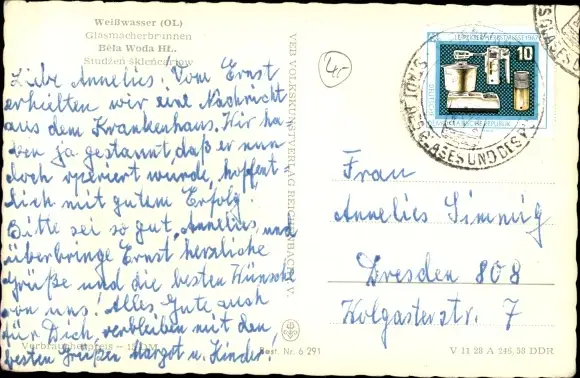 Weißwasser (OL)
Glasmacherbrunnen
Běła Woda HŁ.
Studźeń sklenčarjow
Liebe Annelies! Vom Ernst
erhielten wir eine Nachricht
aus dem Krankenhaus. Wir ha-
ben ja gestaunt, daß er nun
doch operiert wurde, hoffent-
lich mit gutem Erfolg!
Bitte sei so gut, Annelies, und
überbringe Ernst herzliche
Grüße und die besten Wünsche
von uns! Alles Gute auch
für Dich, verbleiben mit den
besten Grüßen Margot u. Kinder.
VEB VOLKSKUNSTVERLAG REICHENBACH I. V.
LEIPZIGER HERBSTMESSE 1967
10
GLASES UND DES
Frau
Annelies Simmig
Dresden 808
Wolgasterstr. 7
Verbraucherpreis
Best. Nr. 6/291
V 11 28 A 246/58 DDR